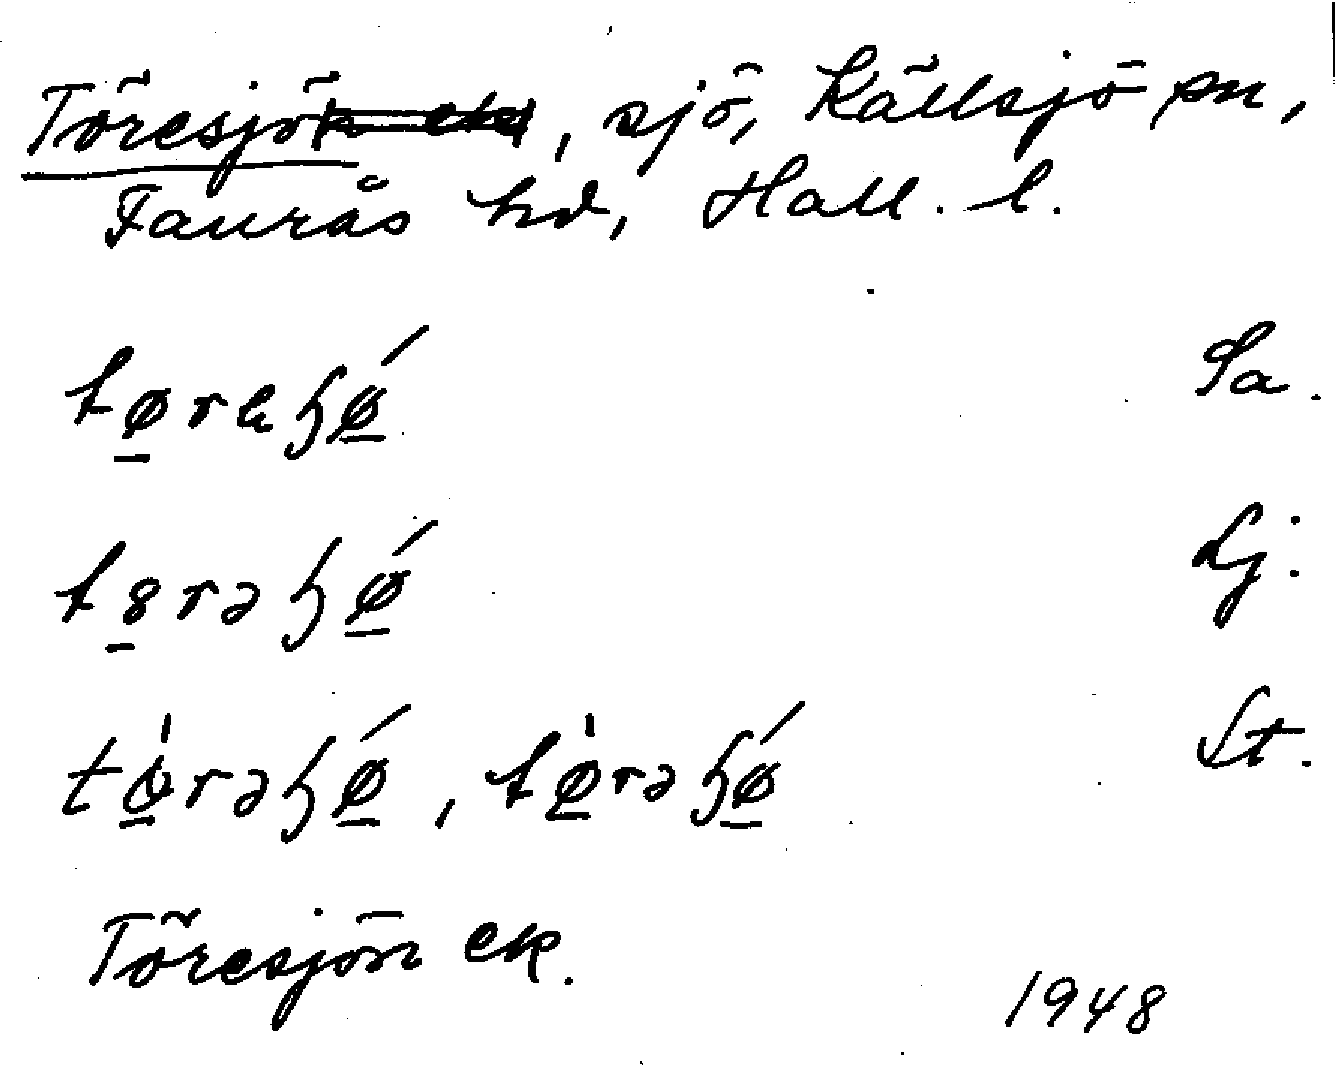 Töresjö, sjö, Källsjö sn,
Faurås hd, Hall. l.
tø̱reɧǿ̱ Sa.
t8̱rəɧǿ̱ Lj.
tø̱̍rəɧǿ̱, tø̱̍rəɧǿ̱ St.
Töresjön ek.
1948